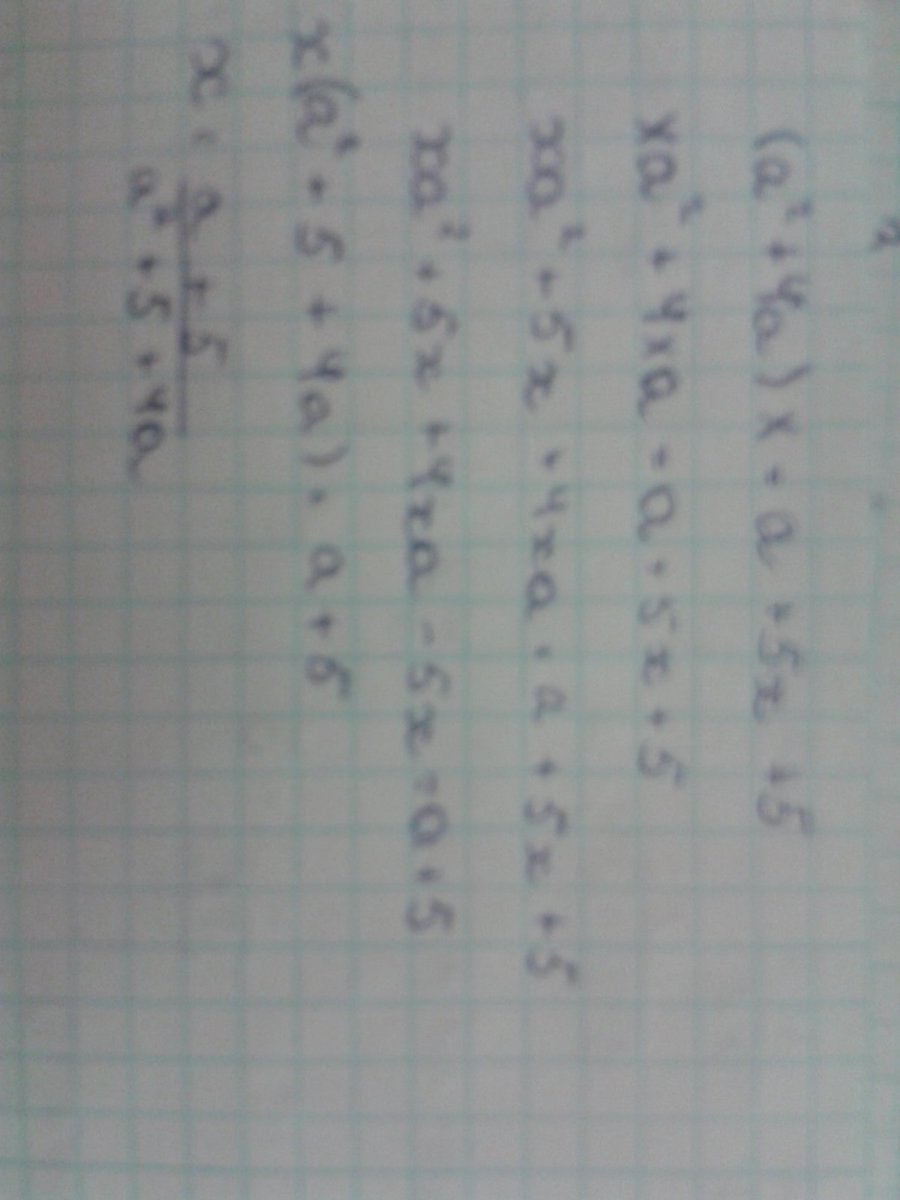 (a² + 4a) x = a + 5x + 5
xa² + 4xa = a + 5x + 5
xa² + 5x + 4xa = a + 5x + 5
xa² + 5x + 4xa - 5x = a + 5
x(a² + 5 + 4a) = a + 5
x = a + 5
a² + 5 + 4a